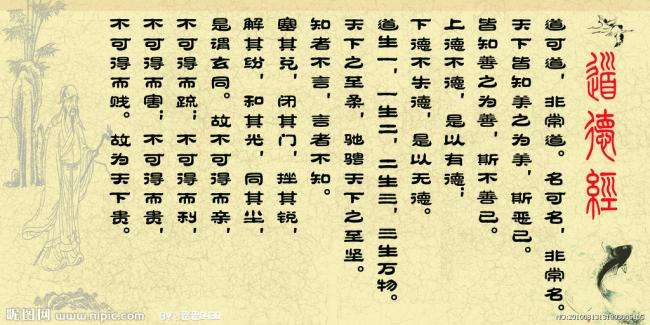 道德經
道可道，非常道。名可名，非常名。
天下皆知美之为美，斯恶已。
皆知善之为善，斯不善已。
上德不德，是以有德；
下德不失德，是以无德。
道生一，一生二，二生三，三生万物。
天下之至柔，驰骋天下之至坚。
知者不言，言者不知。
塞其兑，闭其门，挫其锐，
解其纷，和其光，同其尘，
是谓玄同。故不可得而亲，
不可得而疏；不可得而利，
不可得而害；不可得而贵，
不可得而贱。故为天下贵。
昵图网 www.nipic.com